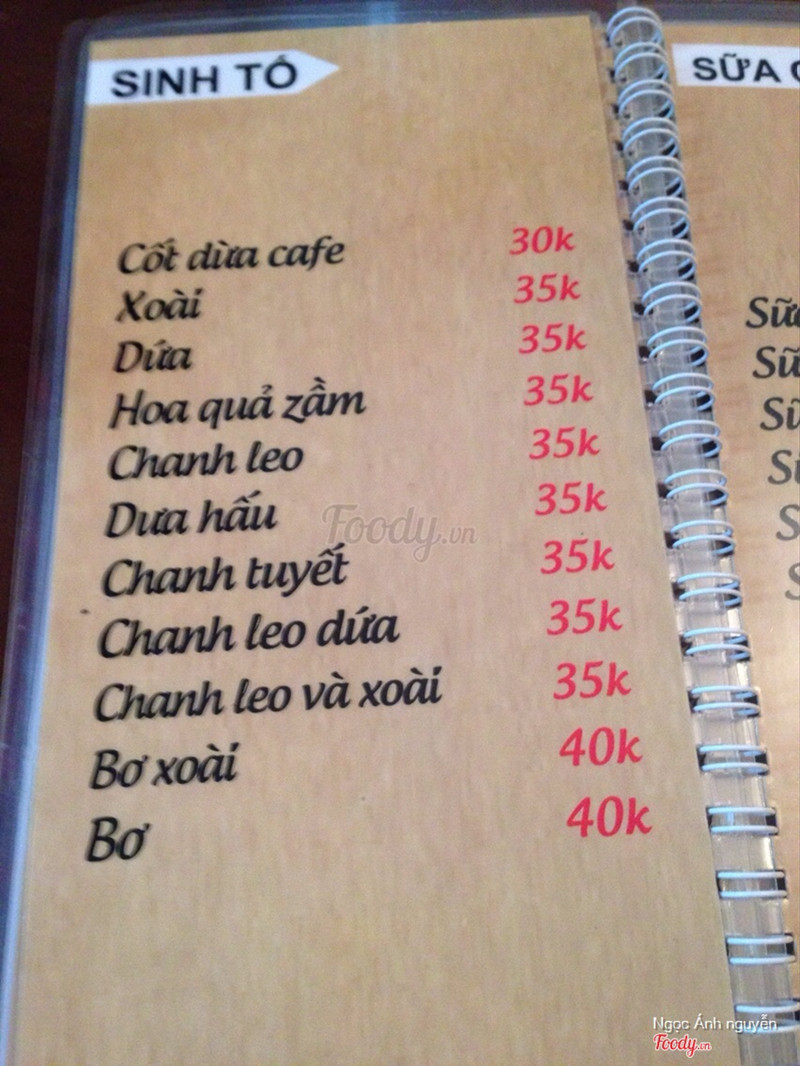 SINH TỐ
Cốt dừa cafe 30k
Xoài 35k
Dứa 35k
Hoa quả zầm 35k
Chanh leo 35k
Dưa hấu 35k
Chanh tuyết 35k
Chanh leo dứa 35k
Chanh leo và xoài 35k
Bơ xoài 40k
Bơ 40k
SỮA
Foody.vn
Ngọc Ánh nguyễn
Foody.vn